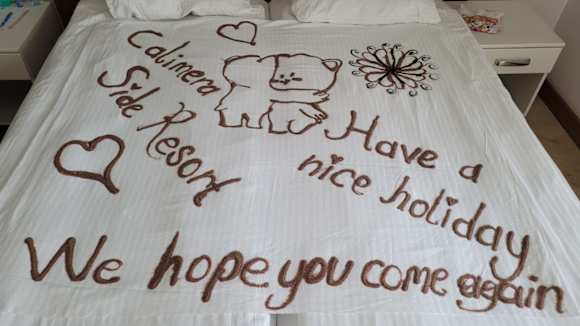 Calimera
Side Resort
Have a
nice holiday
We hope you come again